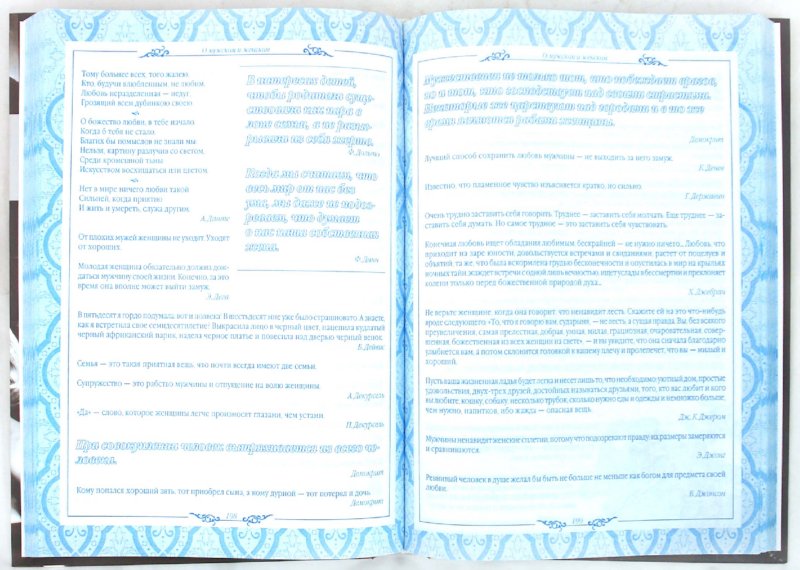 О мужском и женском
Тому больнее всех, того жалею,
Кто, будучи влюбленным, не любим.
Любовь неразделенная — недуг,
Грозящий всем дубинкою своею.
О божество любви, в тебе начало
Когда б тебя не стали
Благих бы помыслов не знали мы.
Нельзя, картину разлучив со светом,
Среди кромешной тьмы
Искусством восхищаться или цветом.
Нет в мире ничего любви такой
Сильней, когда приятно
И жить и умереть, служа другим.
А. Данте
От плохих мужей женщины не уходят. Уходят
от хороших.
Молодая женщина обязательно должна дожидаться
мужчину своей жизни. Конечно, за это
время она вполне может выйти замуж.
Э. Деги
В интересах детей,
чтобы родители существовали
как пара в
лоне семьи, а не разыгрывали
из себя жертв.
Ф. Дольто
Когда мы считаем, что
весь мир от нас без
ума, мы даже не подозреваем,
что думает
о нас наша собственная
жена.
Ф. Данн
В пятьдесят я гордо подумала, вот и полвека! В шестьдесят мне уже было страшновато. А знаете,
как я встретила свое семидесятилетие? Выкрасила лицо в черный цвет, нацепила кудлатый
черный африканский парик, надела черное платье и повесила над дверью черный венок.
Б. Дейвис
Семья — это такая приятная вещь, что почти всегда имеют две семьи.
Супружество — это рабство мужчины и отпущение на волю женщины.
А. Декурсель
«Да» — слово, которое женщины легче произносят глазами, чем устами.
П. Декурсель
При совокуплении человек вытряхивается из всего человека.
Демокрит
Кому попался хороший зять, тот приобрел сына, а кому дурной — тот потерял и дочь.
Демокрит
198
О мужском и женском
Мужественен не только тот, кто побеждает врагов,
но и тот, кто господствует над своими страстями.
Некоторые же царствуют над городами и в то же
время являются рабами женщины.
Демокрит
Лучший способ сохранить любовь мужчины — не выходить за него замуж.
К. Денев
Известно, что пламенное чувство изъясняется кратко, но сильно.
Г. Державин
Очень трудно заставить себя говорить. Труднее — заставить себя молчать. Еще труднее — заставить
себя думать. Но самое трудное — это заставить себя чувствовать.
Конечная любовь ищет обладания любимым, бескрайней — не нужно ничего... Любовь, что
приходит на заре юности, довольствуется встречами и свиданиями, растет от поцелуев и
объятий, та же, что была вскормлена грудью бесконечности и опустилась в мир на крыльях
ночных тайн, жаждет встречи с одной лишь вечностью, ищет услады в бессмертии и преклоняет
колени только перед божественной природой духа...
Х. Джебран
Не верьте женщине, когда она говорит, что ненавидит лесть. Скажите ей на это что-нибудь
вроде следующего: «То, что я говорю вам, сударыня, — не лесть, а сущая правда. Вы без всякого
преувеличения, самая прелестная, добрая, умная, милая, грациозная, очаровательная, совершенная,
божественная из всех женщин на свете», — и вы увидите, что она сначала благодарно
улыбнется вам, а потом склонится головкой к вашему плечу и пролепечет, что вы — милый и
хороший.
Пусть ваша жизненная ладья будет легка и несет лишь то, что необходимо: уютный дом, простые
удовольствия, двух-трех друзей, достойных называться друзьями, того, кто вас любит и кого
вы любите, кошку, собаку, несколько трубок, сколько нужно еды и одежды и немножко больше,
чем нужно, напитков, ибо жажда — опасная вещь.
Дж. К. Джером
Мужчины ненавидят женские сплетни, потому что подозревают правду: их размеры замеряются
и сравниваются.
Э. Джонг
Ревнивый человек в душе желал бы быть не больше не меньше как богом для предмета своей
любви.
Б. Джонсон
199